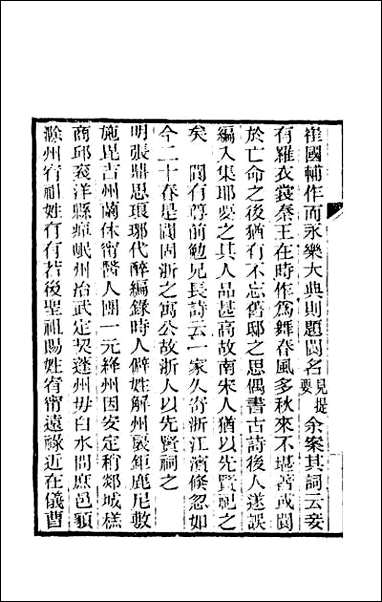 崔國輔作而永樂大典則題閻名見提要余案其詞云妾
有羅衣裳秦王在時作爲舞春風多秋來不堪著或閻
於亡命之後猶有不忘舊邸之思偶書古詩後人遂誤
編入集耶要之其人品甚高故南宋人猶以先賢祀之
矣　閻有尊前勉兄長詩云一家久寄浙江濱倏忽如
今二十春是閻固浙之寓公故浙人以先賢祠之
明張鼎思琅琊代醉編錄時人僻姓解州裊鉅鹿尼敷
施毘吉州蘭休甯醫人團一元絳州因安定稍郯城榚
商邱袞洋縣瘴岷州治武定契蓬州毋白水問庶邑頟
滁州宥祖姓有有若後聖祖賜姓宥甯遠祿近在儀曹